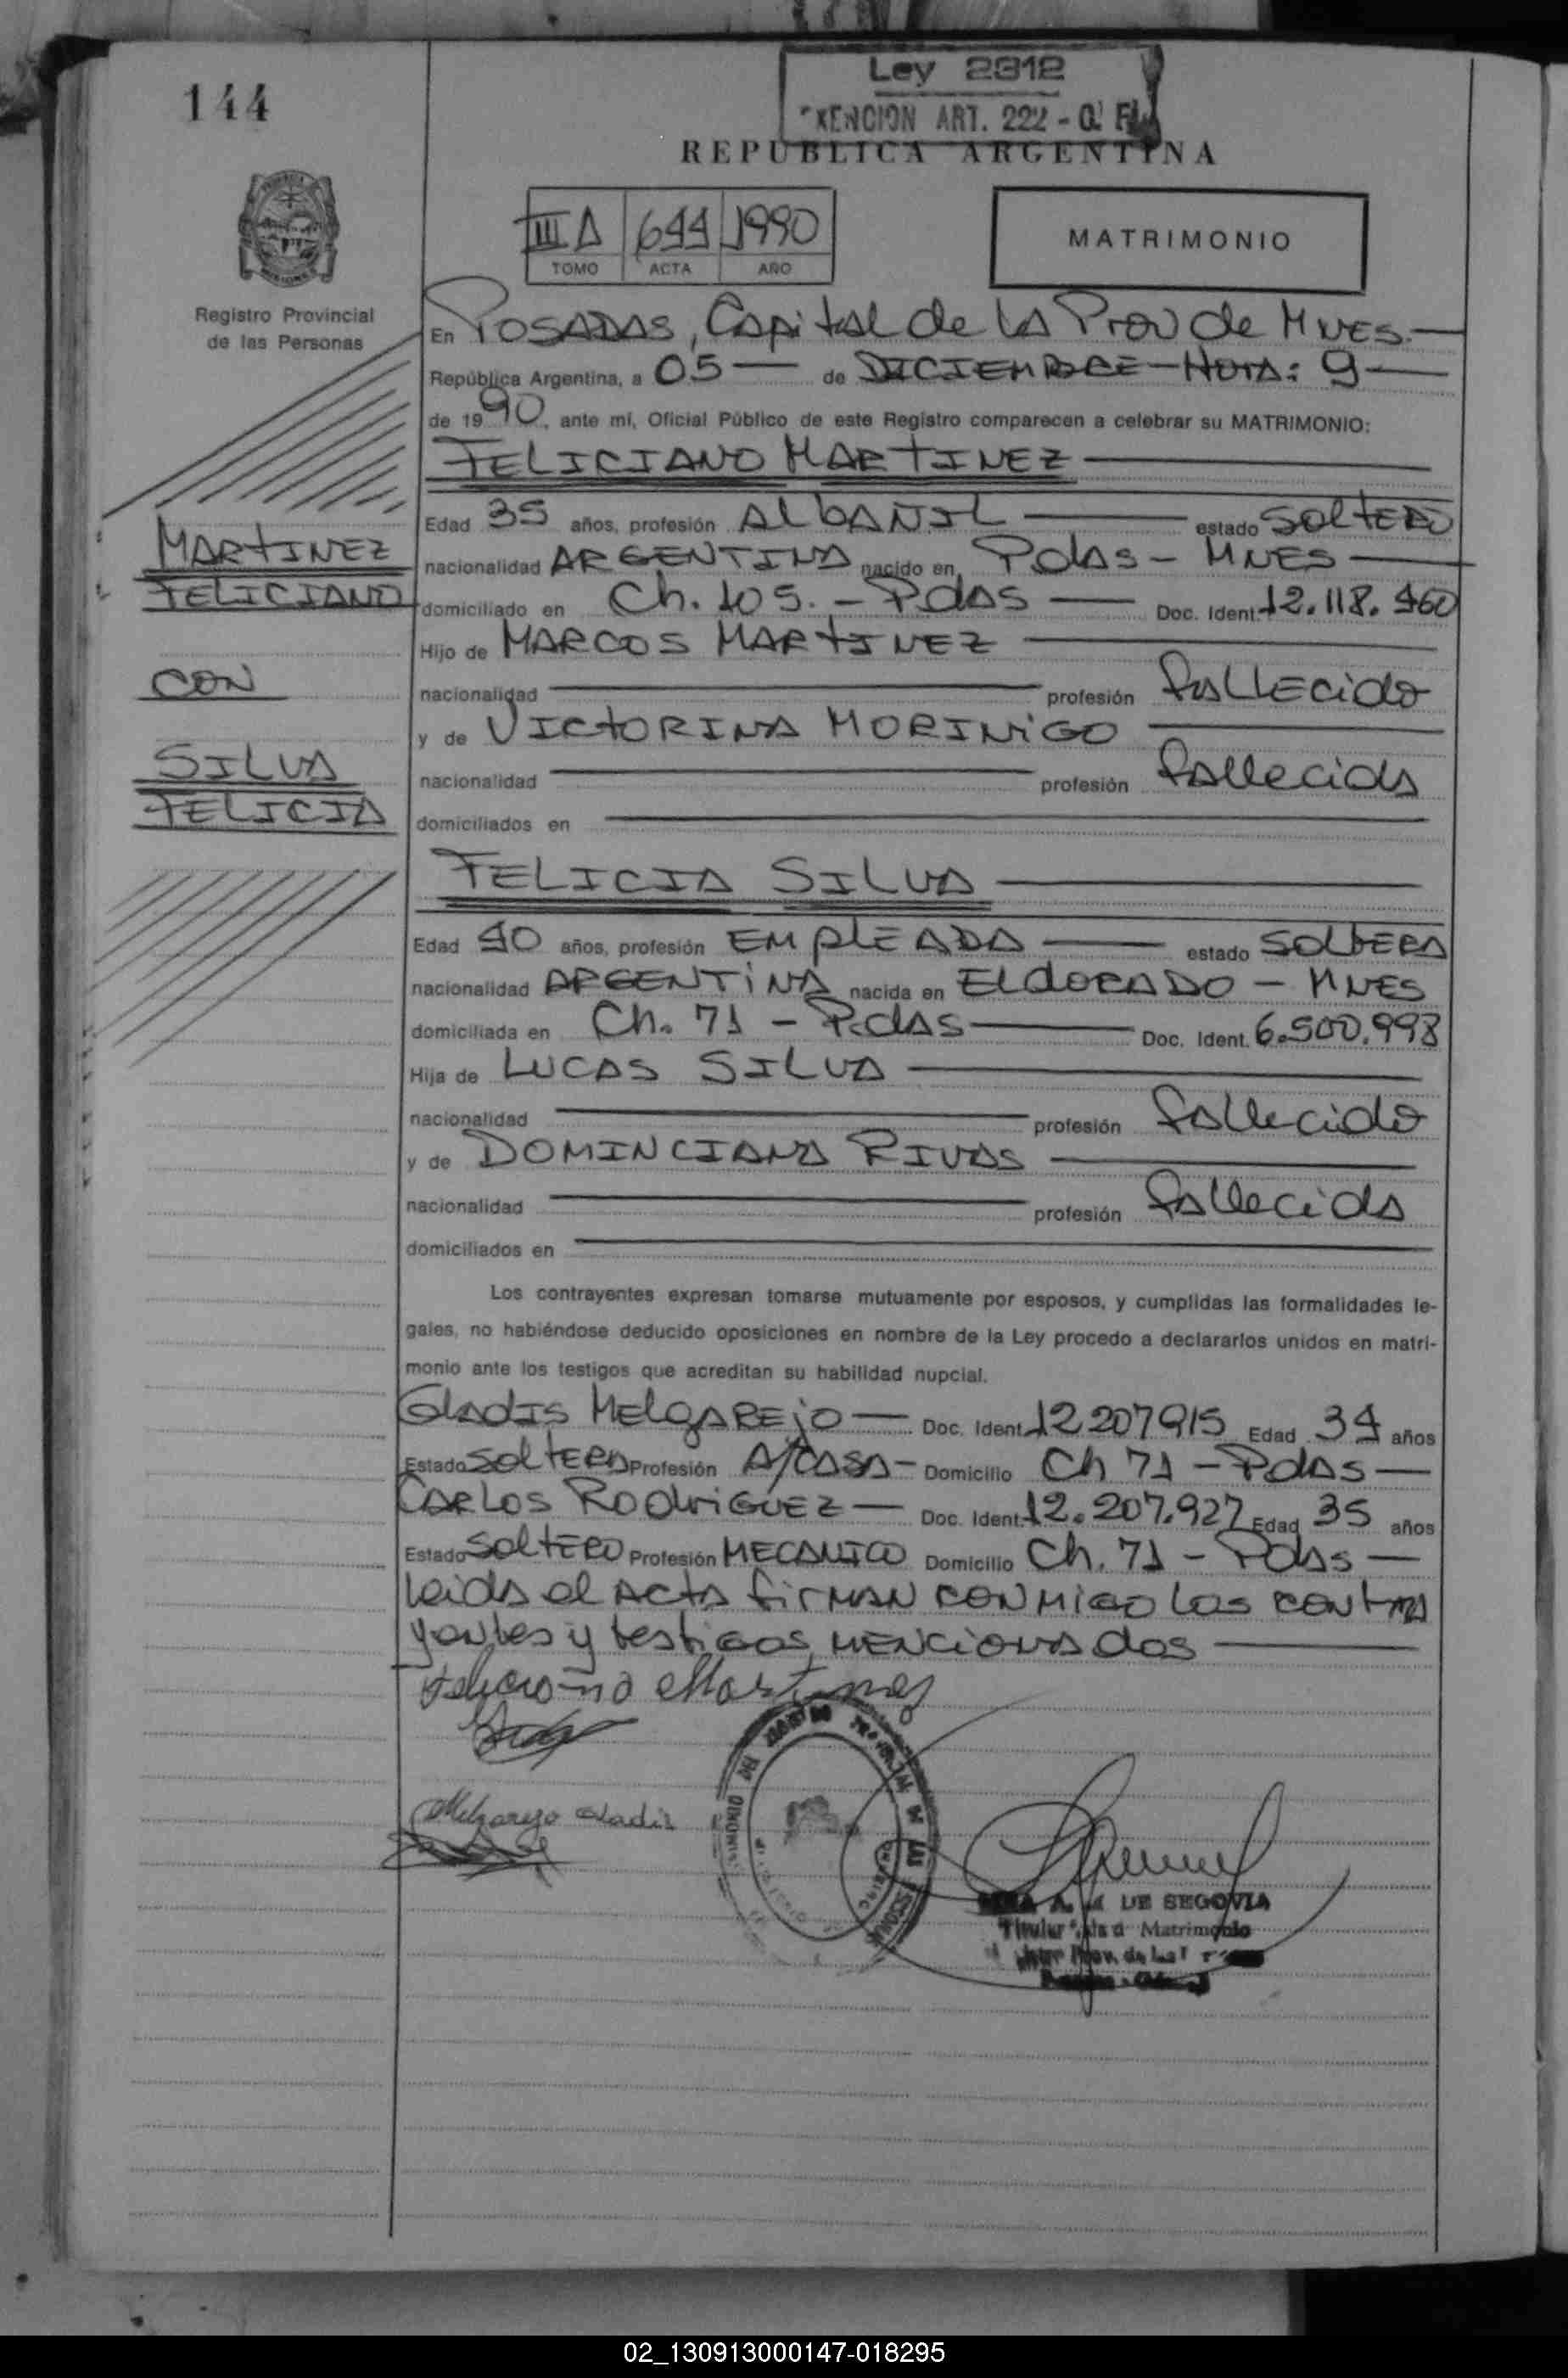 144
Ley 2312
EXENCION ART. 222 - C. F.
REPUBLICA ARGENTINA
III A 644 1990
TOMO ACTA AÑO
MATRIMONIO
Registro Provincial
de las Personas
En POSADAS, Capital de LA Prov de MNES.
República Argentina, a 05 de DICIEMBRE - Hora: 9
de 1990, ante mí, Oficial Público de este Registro comparecen a celebrar su MATRIMONIO:
FELICIANO MARTINEZ
Edad 35 años, profesión AlbAÑIL estado SOLTERO
MARTINEZ
FELICIANO
nacionalidad ARGENTINA nacido en Pdas - MNES
domiciliado en Ch. 105. - Pdas Doc. Ident. 12.118.460
Hijo de MARCOS MARTINEZ
CON
nacionalidad profesión fallecido
y de VICTORINA MORINIGO
SILVA
FELICIA
nacionalidad profesión fallecida
domiciliados en
FELICIA SILVA
Edad 40 años, profesión EMPLEADA estado SOLTERA
nacionalidad ARGENTINA nacida en ELDORADO - MNES
domiciliada en Ch. 71 - Pdas Doc. Ident. 6.500.998
Hija de LUCAS SILVA
nacionalidad profesión fallecido
y de DOMINCIANA RIVAS
nacionalidad profesión fallecida
domiciliados en
Los contrayentes expresan tomarse mutuamente por esposos, y cumplidas las formalidades le-
gales, no habiéndose deducido oposiciones en nombre de la Ley procedo a declararlos unidos en matri-
monio ante los testigos que acreditan su habilidad nupcial.
Gladis MELGAREJO Doc. Ident. 12207915 Edad 34 años
Estado SOLTERA Profesión A/CASA - Domicilio Ch 71 - Pdas
CARLOS RODRIGUEZ Doc. Ident. 12.207.927 Edad 35 años
Estado SOLTERO Profesión MECANICO Domicilio Ch. 71 - Pdas
Leida el ACTA firman conmigo los contra
yentes y testigos mencionados
Feliciano Martinez
Melgarejo Gladis
A. M DE SEGOVIA
Titular Matrimonio
02_130913000147-018295